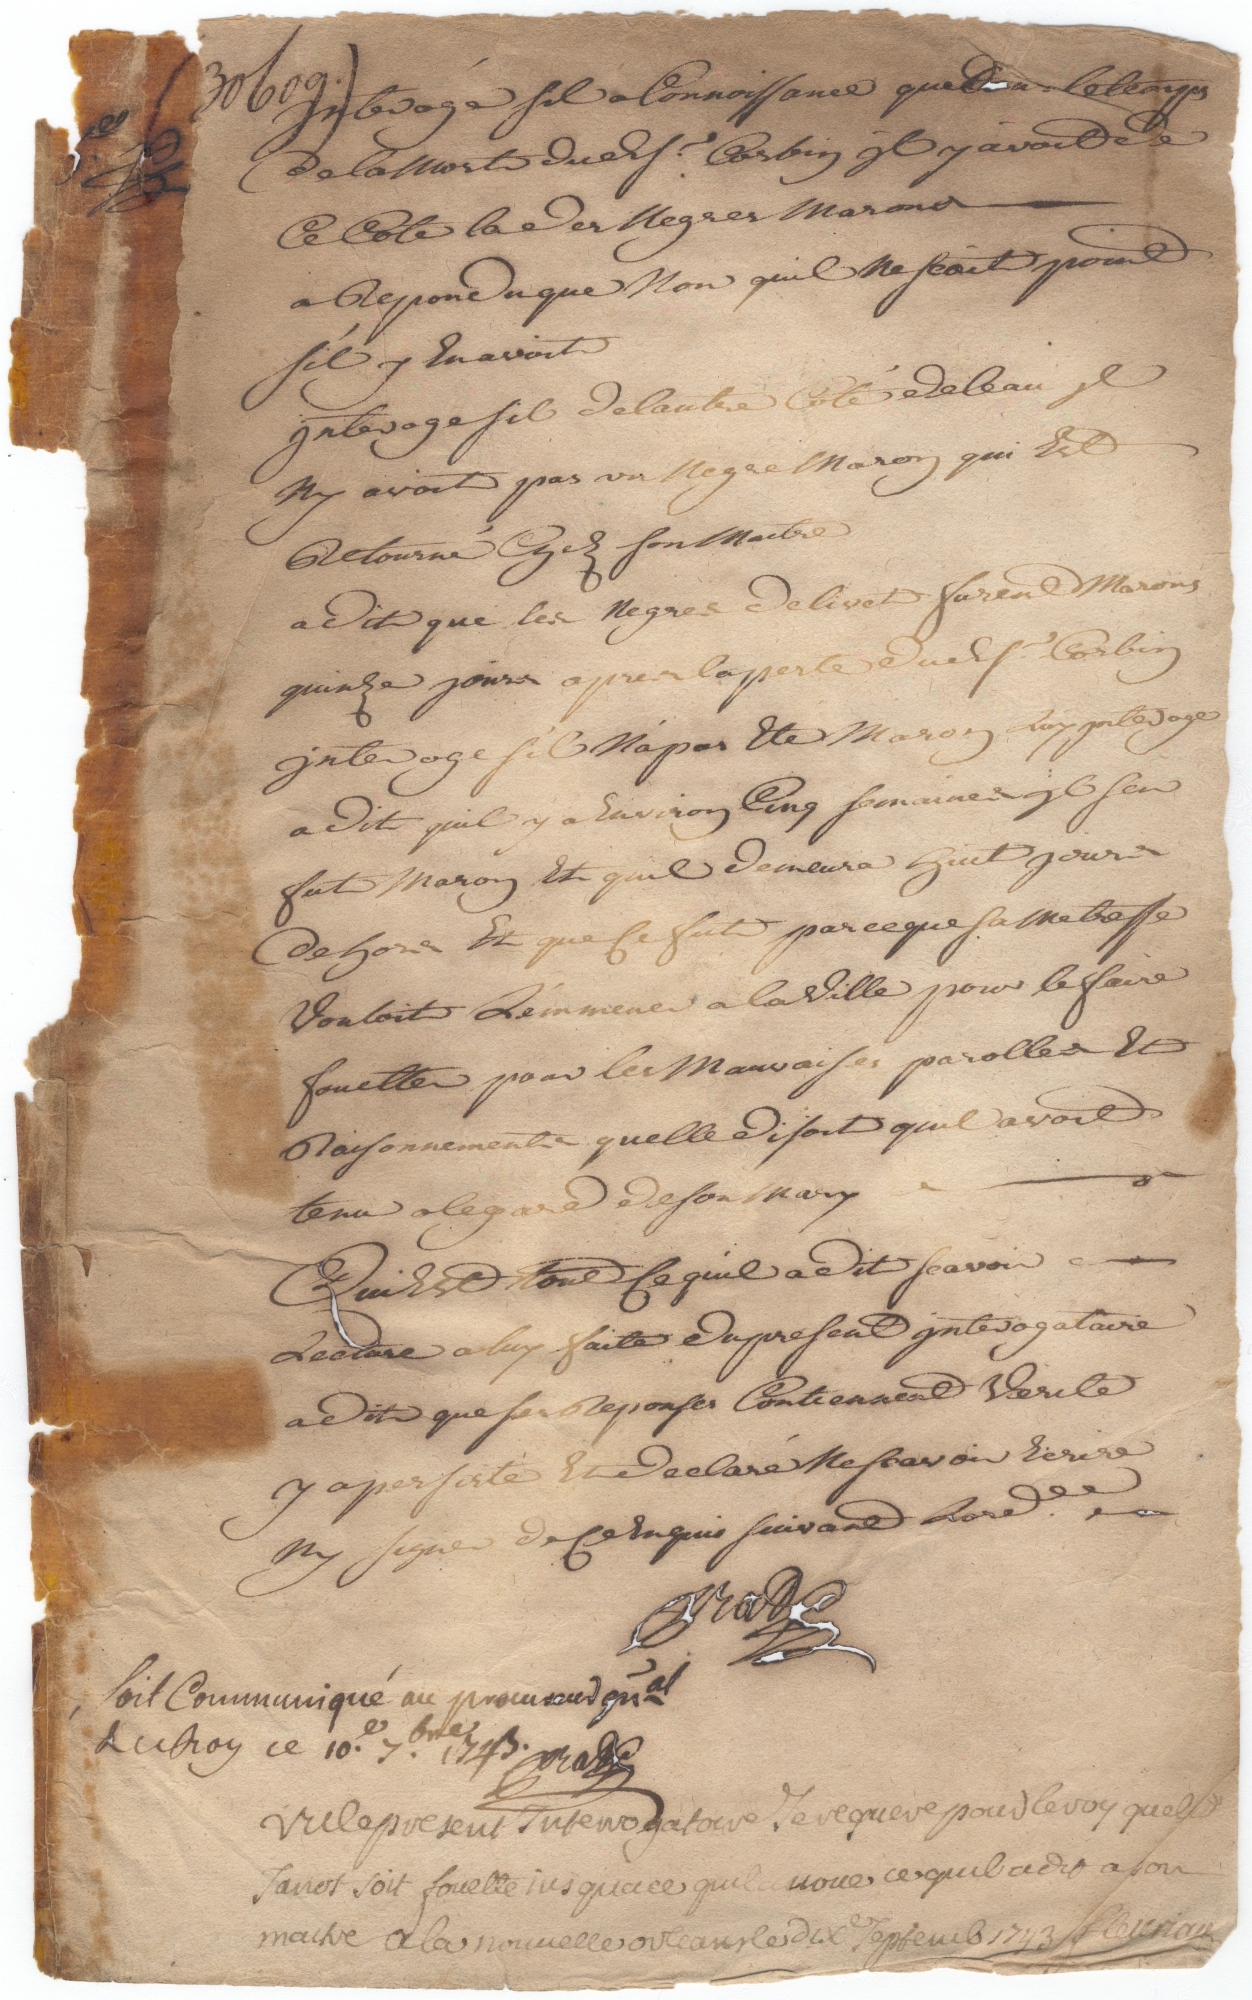 30609)
jnterogé sil a Connoissance que dans le temps
de la Mort dud. Sr. Corbin jl y avoit de
Ce Coté la des Negres Marons
a Repondu que Non quil Ne scait point
sil y En avoit
jnteroge sil de lautre Coté de leau jl
Ny avoit pas un Negre Maron qui Est
Retourné Chez son Maitre
a dit que les Negres de livet furent Marons
quinze jours apres la perte dud. Sr. Corbin
jnteroge sil Na pas Eté Maron Luy jnteroge
a dit quil y a Environ Cinq semaines jl sen
fut Maron Et quil demeura huit jours
dehors Et que Ce fut parceque sa Metresse
Vouloit Lemmener a la Ville pour le faire
fouetter pour les Mauvaises parolles Et
Raisonnements quelle disoit quil avoit
tenu a legard de son Mary
Qui Est tout Ce quil a dit scavoir
Lecture a luy faite du present jnterogataire
a dit que ses Reponses Contiennent Verité
y a persisté Et declaré Ne scavoir Ecrire
Ny signer de Ce Enquis suivant Lord.ce
Prad
Soit Communiqué au procureur gnal
du Roy ce 10.e 7.bre 1743.
Prad
Vu le present Interrogatoire Je requere pour le roy que led
Jannot soit fouetté jusqua ce quil avoue ce quil a dit a son
maitre a la nouvelle orleans le dix Septemb 1743 fleuriau